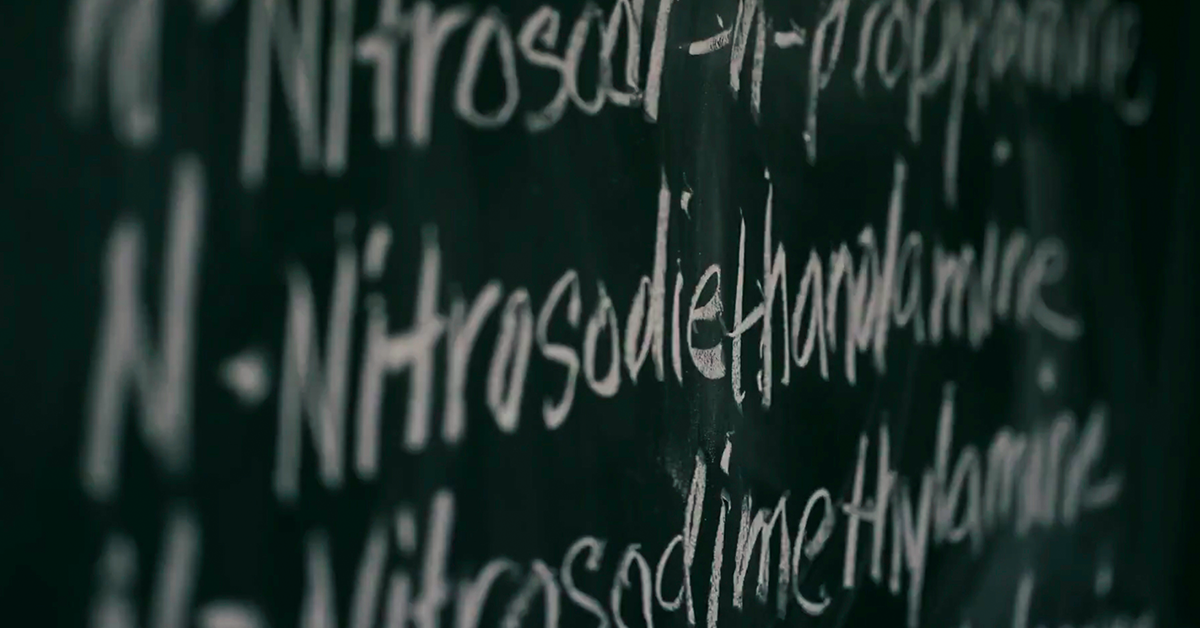 N-Nitrosodi-n-propylamine
N-Nitrosodiethanolamine
N-Nitrosodimethylamine